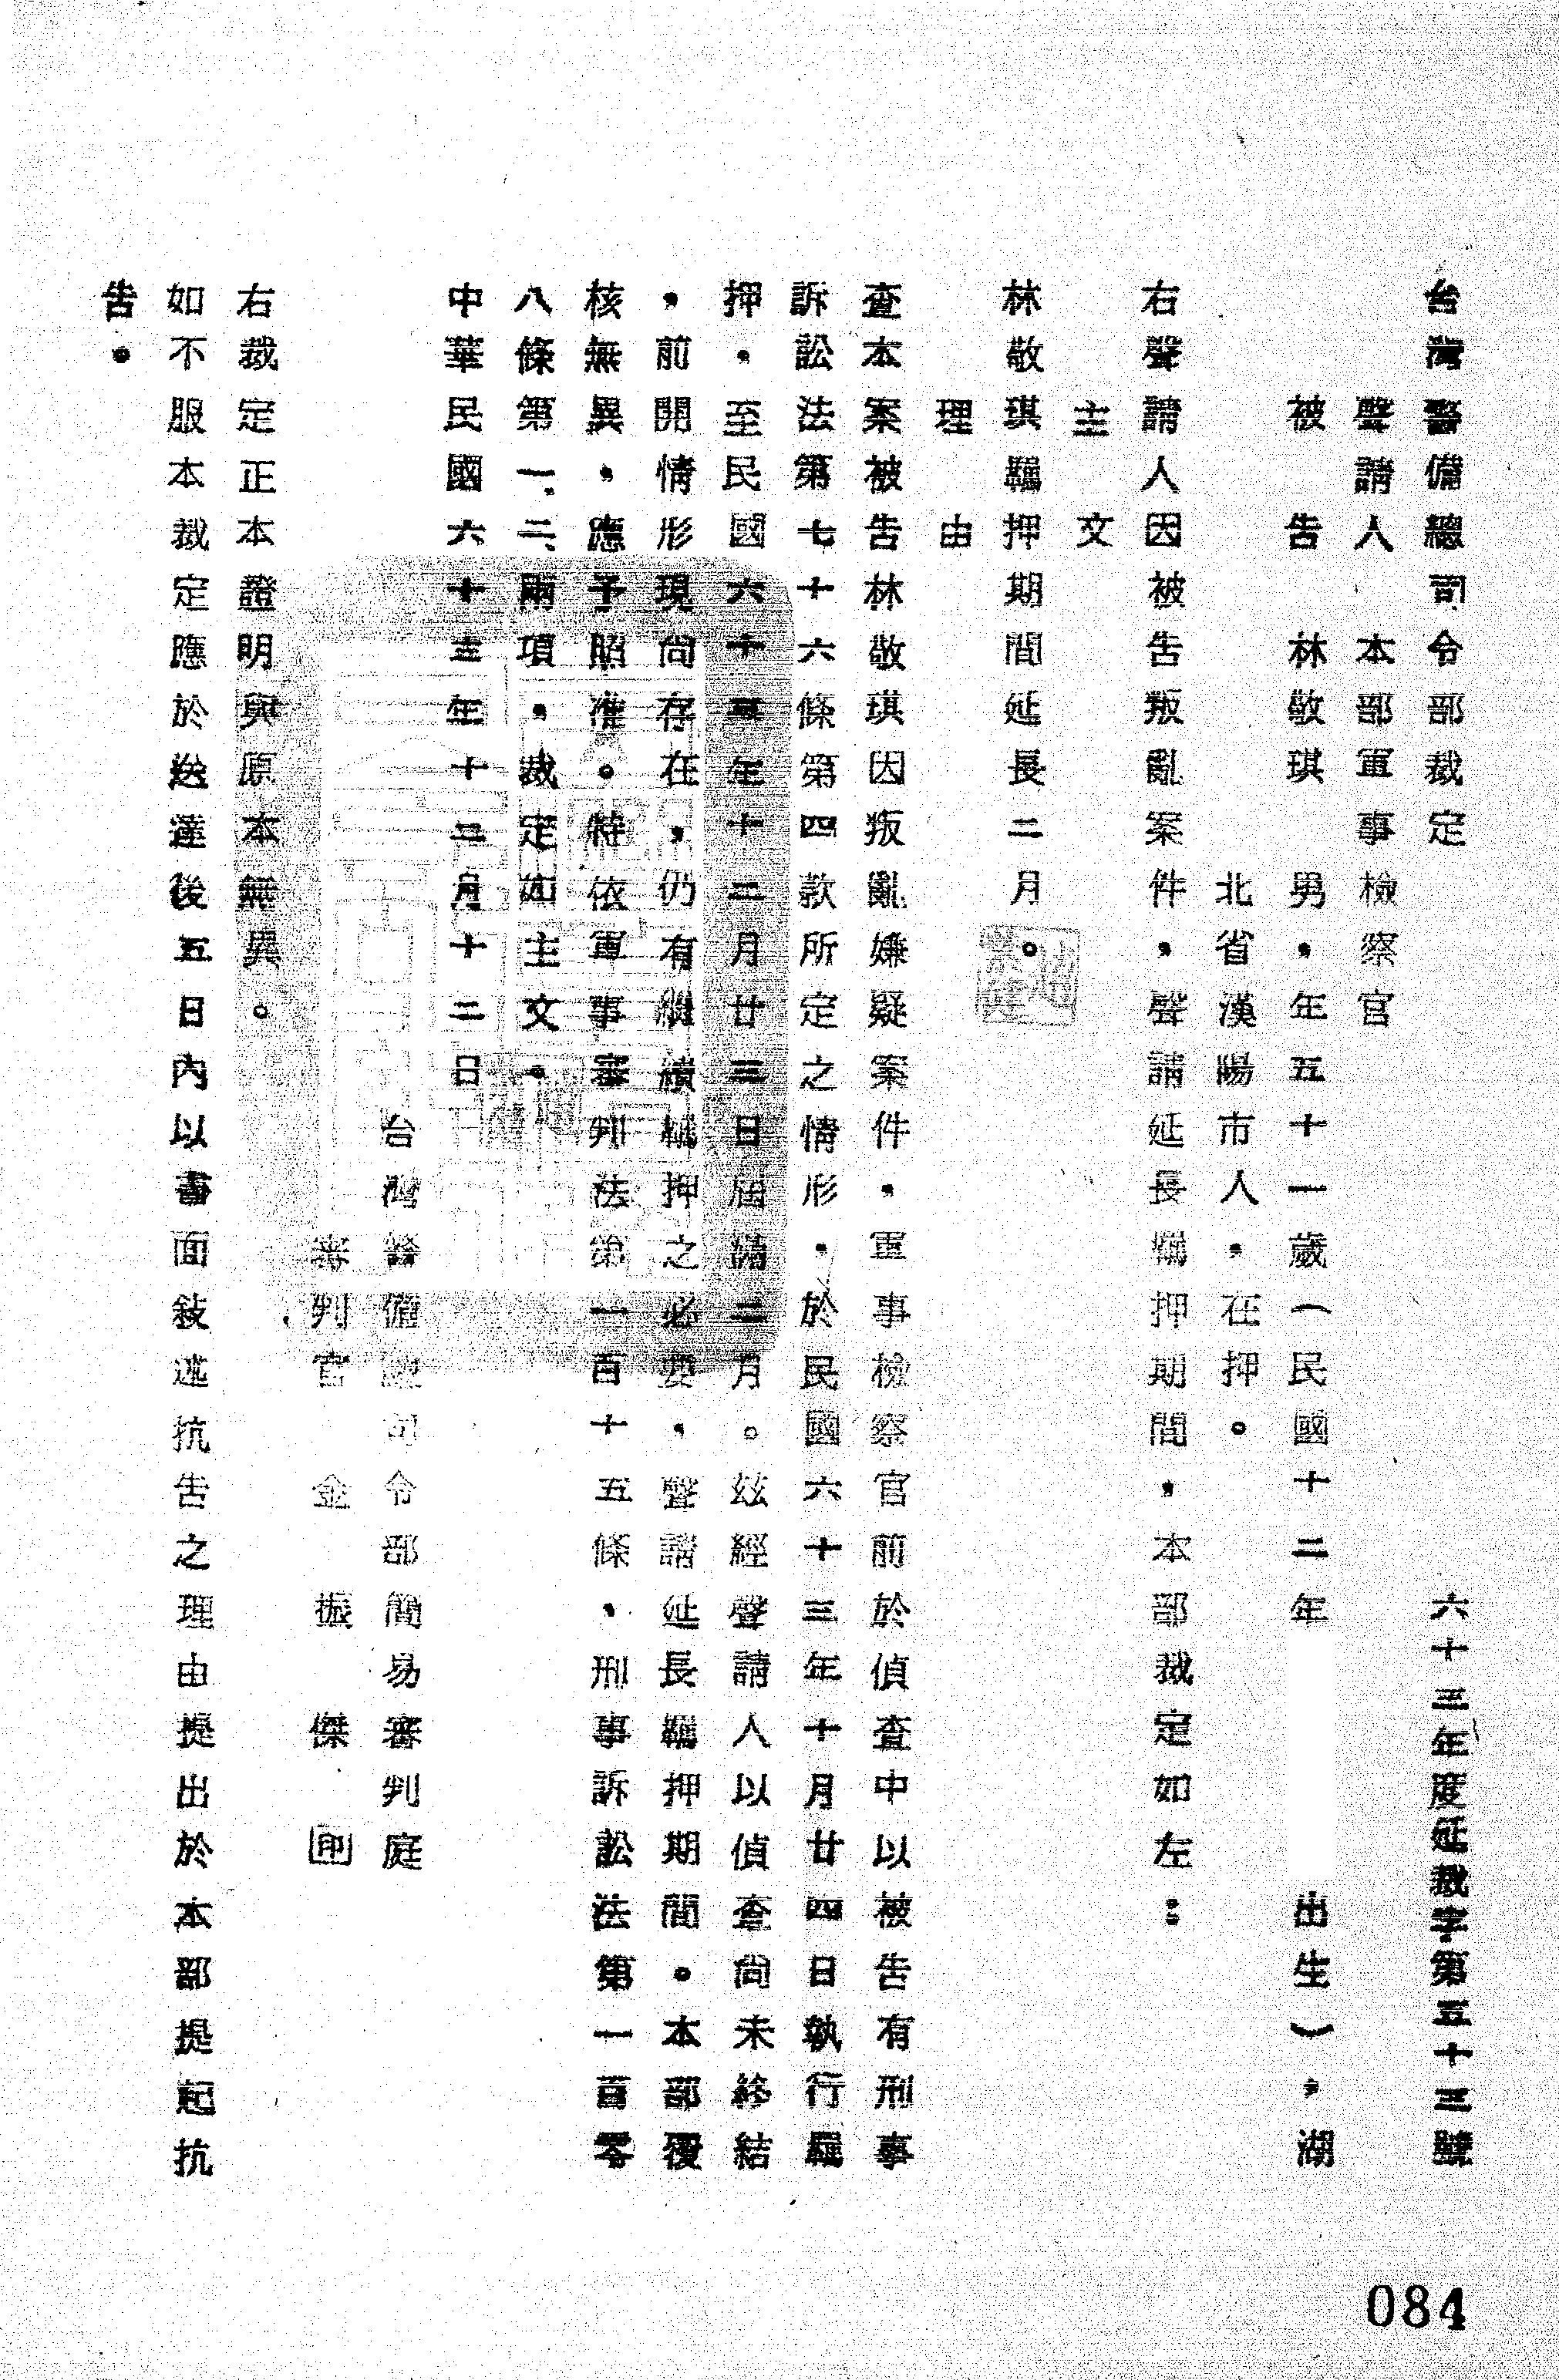 台灣警備總司令部裁定 六十三年度延裁字第五十三號
聲請人 本部軍事檢察官
被告 林敬琪 男，年五十一歲（民國十二年 出生），湖
北省漢陽市人，在押。
右聲請人因被告叛亂案件，聲請延長羈押期間，本部裁定如左：
主文
林敬琪羈押期間延長二月。
理由
查本案被告林敬琪因叛亂嫌疑案件，軍事檢察官前於偵查中以被告有刑事
訴訟法第七十六條第四款所定之情形，於民國六十三年十月廿四日執行羈
押，至民國六十三年十二月廿三日屆滿二月。茲經聲請人以偵查尚未終結
，前開情形現尚存在，仍有繼續羈押之必要，聲請延長羈押期間。本部覆
核無異，應予照准。特依軍事審判法第一百十五條，刑事訴訟法第一百零
八條第一、二、兩項，裁定如主文。
中華民國六十三年十二月十二日
台灣警備總司令部簡易審判庭
審判官 金振傑 印
右裁定正本證明與原本無異。
如不服本裁定應於送達後五日內以書面敍述抗告之理由提出於本部提起抗
告。
084